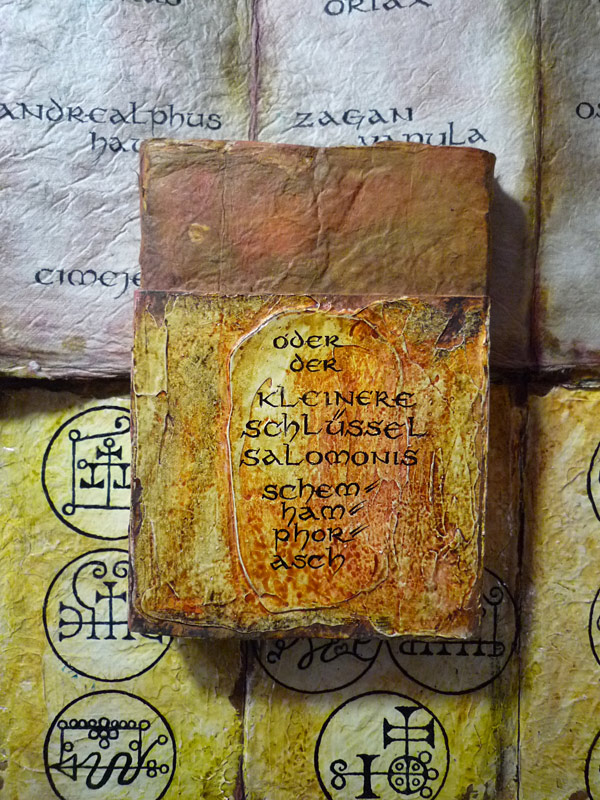 oriax
andrealphus
zagan
vapula
oder
der
kleinere
schlüssel
salomonis
schem=
ham=
phor=
asch